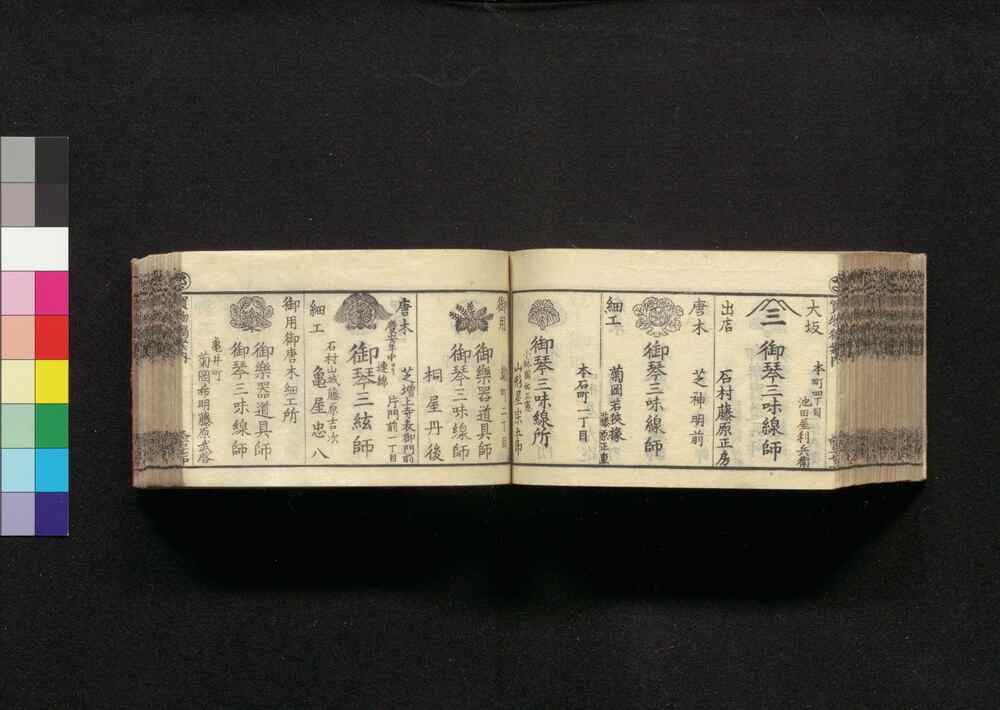 大坂
三
御琴三味線師
本町四丁目
池田屋利兵衛
出店
石村藤原正房
唐木
御琴三味線師
芝神明前
細工
菊岡若狭掾
藤原正重
御琴三味線所
本石町一丁目
御用
二丁目
御樂器道具師
御琴三味線師
桐屋丹後
唐木
御琴三絃師
連綿
芝増上寺表御門前
片門前一丁目
細工
石村山城藤原吉次
亀屋忠八
御用御唐木細工所
御樂器道具師
御琴三味線師
亀井町
菊岡希明藤原武啓